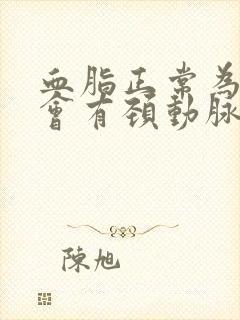 血脂正常為
會有頸動脈
陳旭